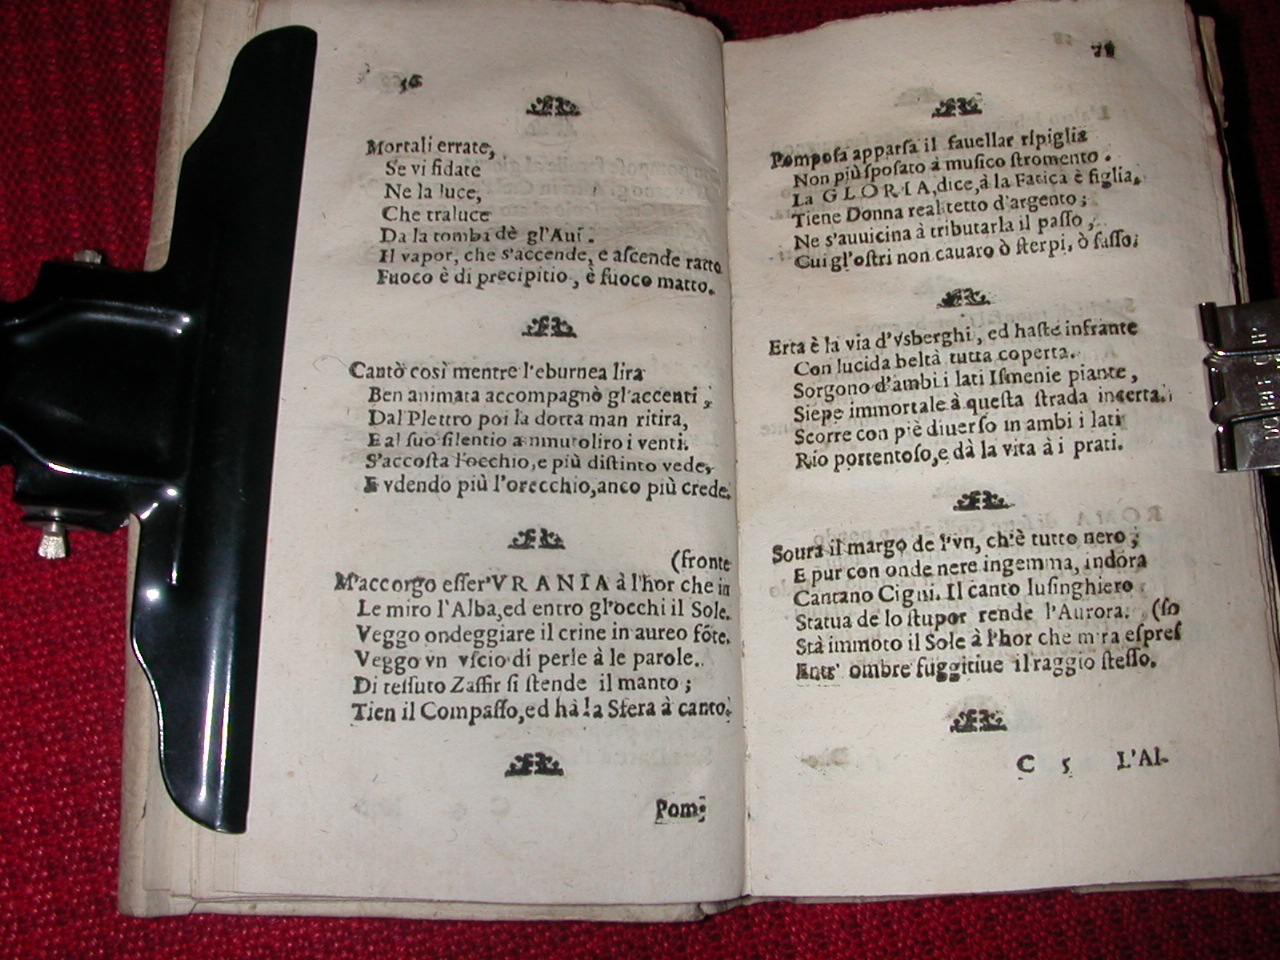 56
Mortali errate,
Se vi fidate
Ne la luce,
Che traluce
Da la tomba dè gl'Aui.
Il vapor, che s'accende, e ascende ratto
Fuoco è di precipitio, è fuoco matto.
Cantò così mentre l'eburnea lira
Ben animata accompagnò gl'accenti;
Dal Plettro poi la dotta man ritira,
E al suo silentio ammutoliro i venti.
S'accosta l'occhio, e più distinto vede,
E vdendo più l'orecchio, anco più crede.
(fronte
M'accorgo esser VRANIA à l'hor che in
Le miro l'Alba, ed entro gl'occhi il Sole.
Veggo ondeggiare il crine in aureo fōte.
Veggo vn vscio di perle à le parole.
Di tessuto Zaffir si stende il manto;
Tien il Compasso, ed hà la Sfera à canto.
Pom-
Pomposa apparsa il fauellar ripiglia
Non più sposato à musico stromento.
La GLORIA, dice, à la Fatica è figlia,
Tiene Donna real tetto d'argento;
Ne s'auuicina à tributarla il passo,
Cui gl'ostri non cauaro ò sterpi, ò sasso.
Erta è la via d'vsberghi, ed haste infrante
Con lucida beltà tutta coperta.
Sorgono d'ambi i lati Ismenie piante,
Siepe immortale à questa strada incerta.
Scorre con piè diuerso in ambi i lati
Rio portentoso, e dà la vita à i prati.
Soura il margo de l'vn, ch'è tutto nero;
E pur con onde nere ingemma, indora
Cantano Cigni. Il canto lusinghiero
Statua de lo stupor rende l'Aurora. (so
Stà immoto il Sole à l'hor che mira espres
Entr' ombre fuggitiue il raggio stesso.
C 5 L'Al-